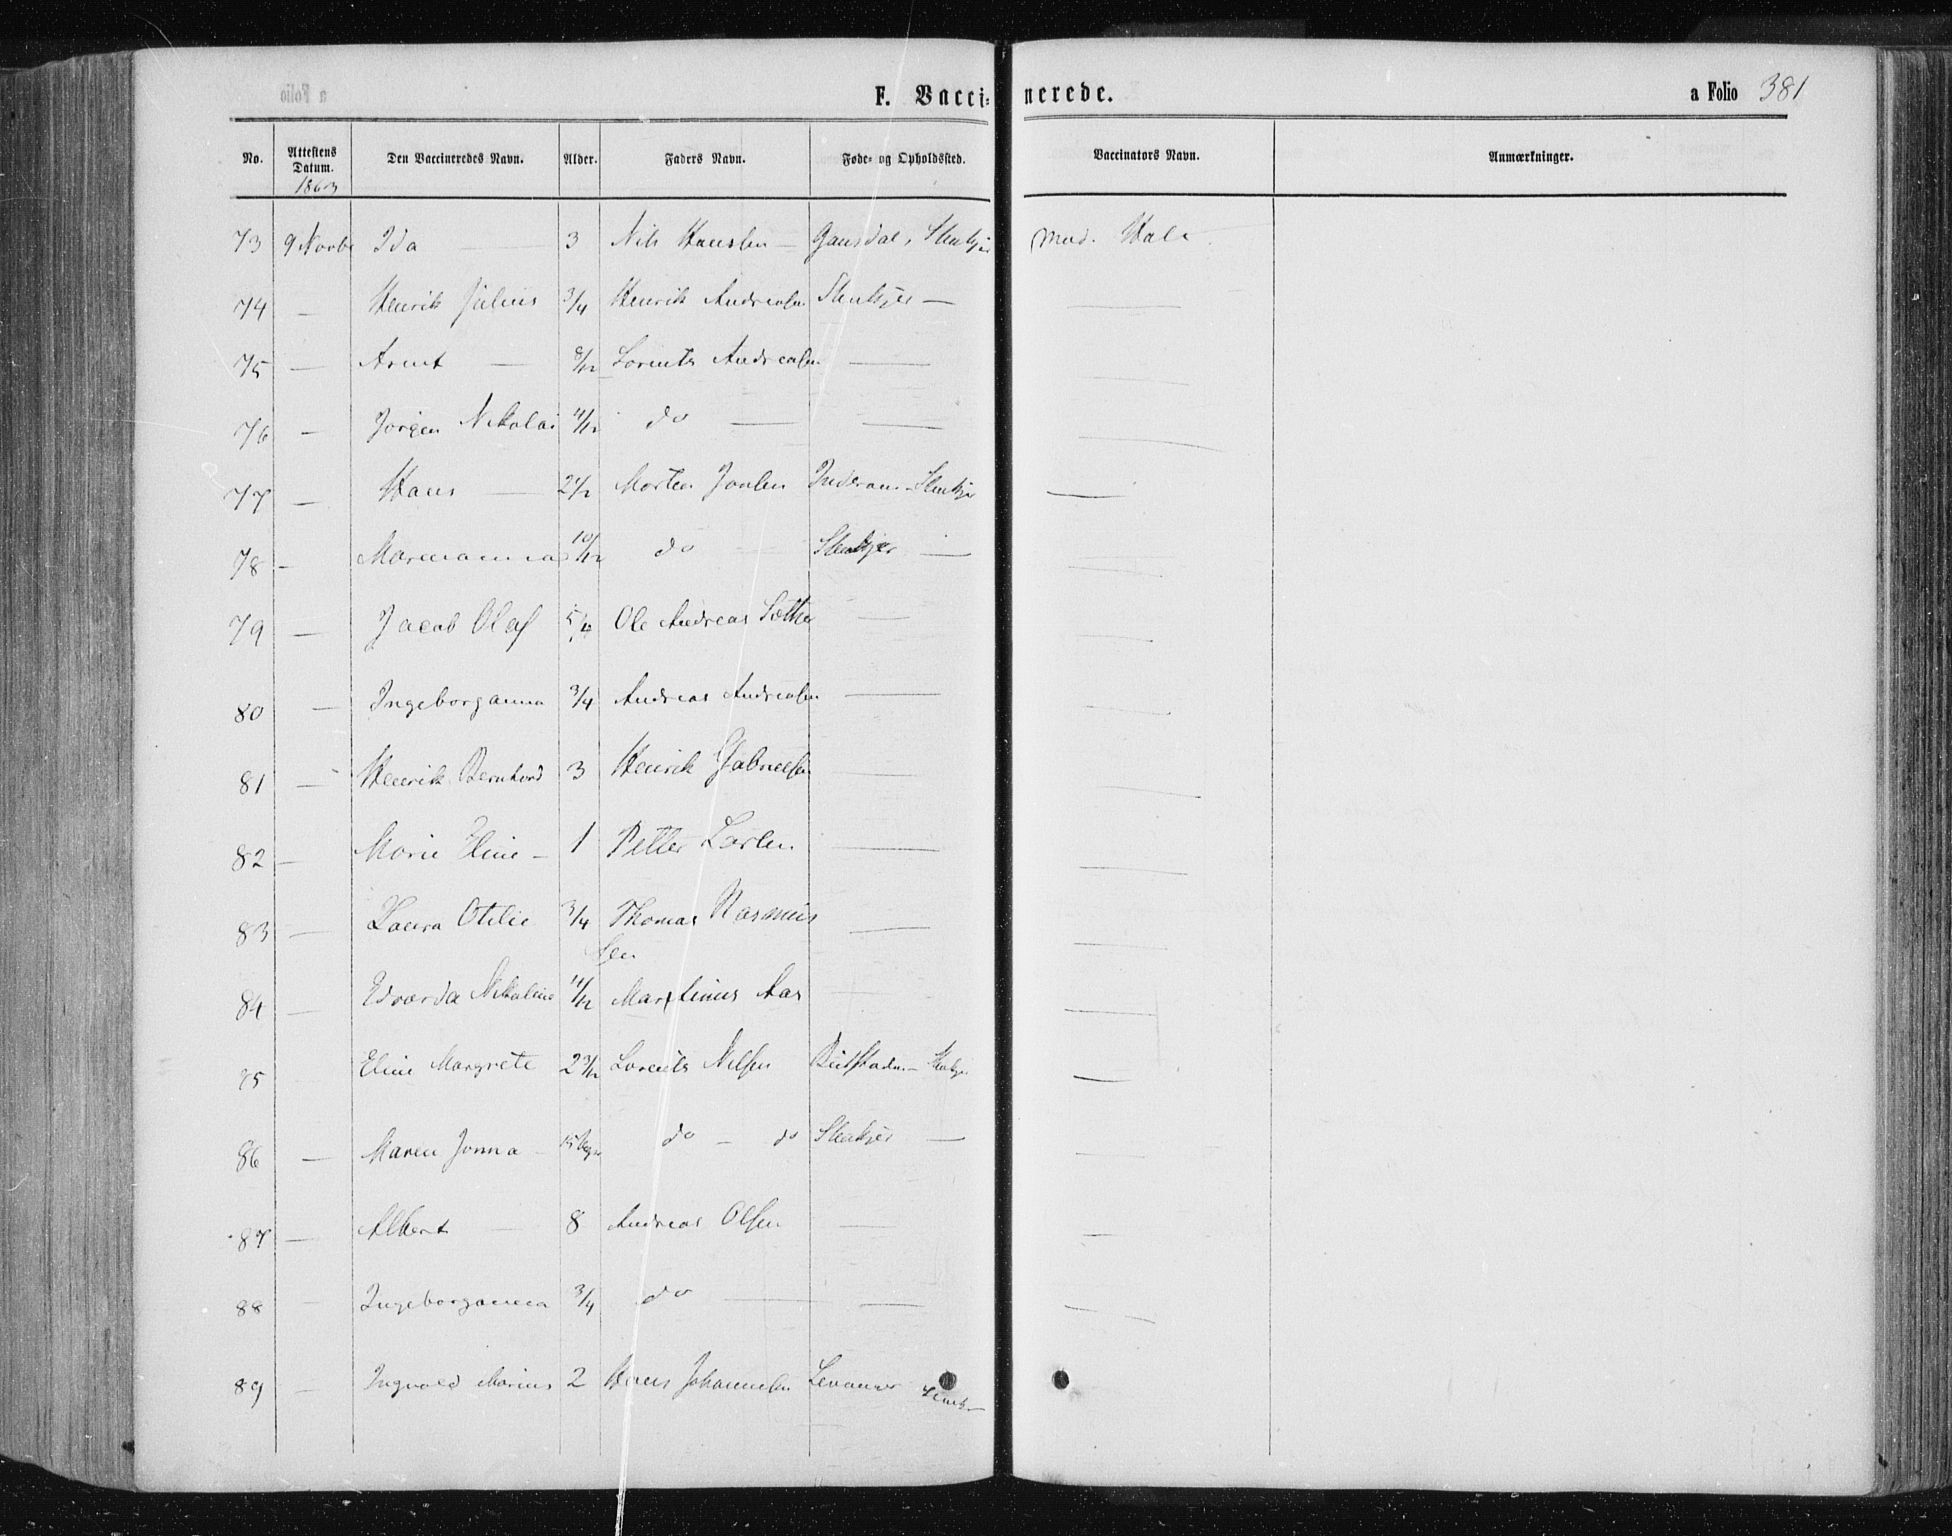 F. Vaccinerede. a Folio 381
No. Attestens Datum. Den Vaccineredes Navn. Alder. Faders Navn. Føde- og Opholdssted. Vaccinators Navn. Anmærkninger.
1863
73 9 Novbr Ida — 3 Nils Hansen — Stenkjer
74 — Henrik Julius 3/4 Henrik Andreasen Stenkjer —
75 — Arnt — 8/12 Lorents Andreasen —
76 — Jørgen Nikolai 4/12 do — —
77 — Hans — 2 1/2 Morten Jonsen Inderøen — Stenkjer —
78 — Marenanna 10/12 do — Stenkjer — —
79 — Jacob Olaf 5/4 Ole Andreas Sæther — —
80 — Ingeborganna 3/4 Andreas Andreasen — —
81 — Henrik Bernhard 3 Henrik Gabrielsen — —
82 — Marie Eline — 1 Petter Larsen — —
83 — Laura Otilie 3/4 Thomas Rasmus — —
sen
84 — Edvarda Nikoline 11/12 Martinus Aas — —
85 Eline Margrete 2 3/12 Lorents Nilsen Beitstaden — Stenkjer —
86 — Maren Jonna — 15 Uger do — do Stenkjer — —
87 — Albert — 8 Andreas Olsen — —
88 — Ingeborganna 3/4 do — — —
89 — Ingvald Marius 2 Hans Johannesen Levanger Stenkj —